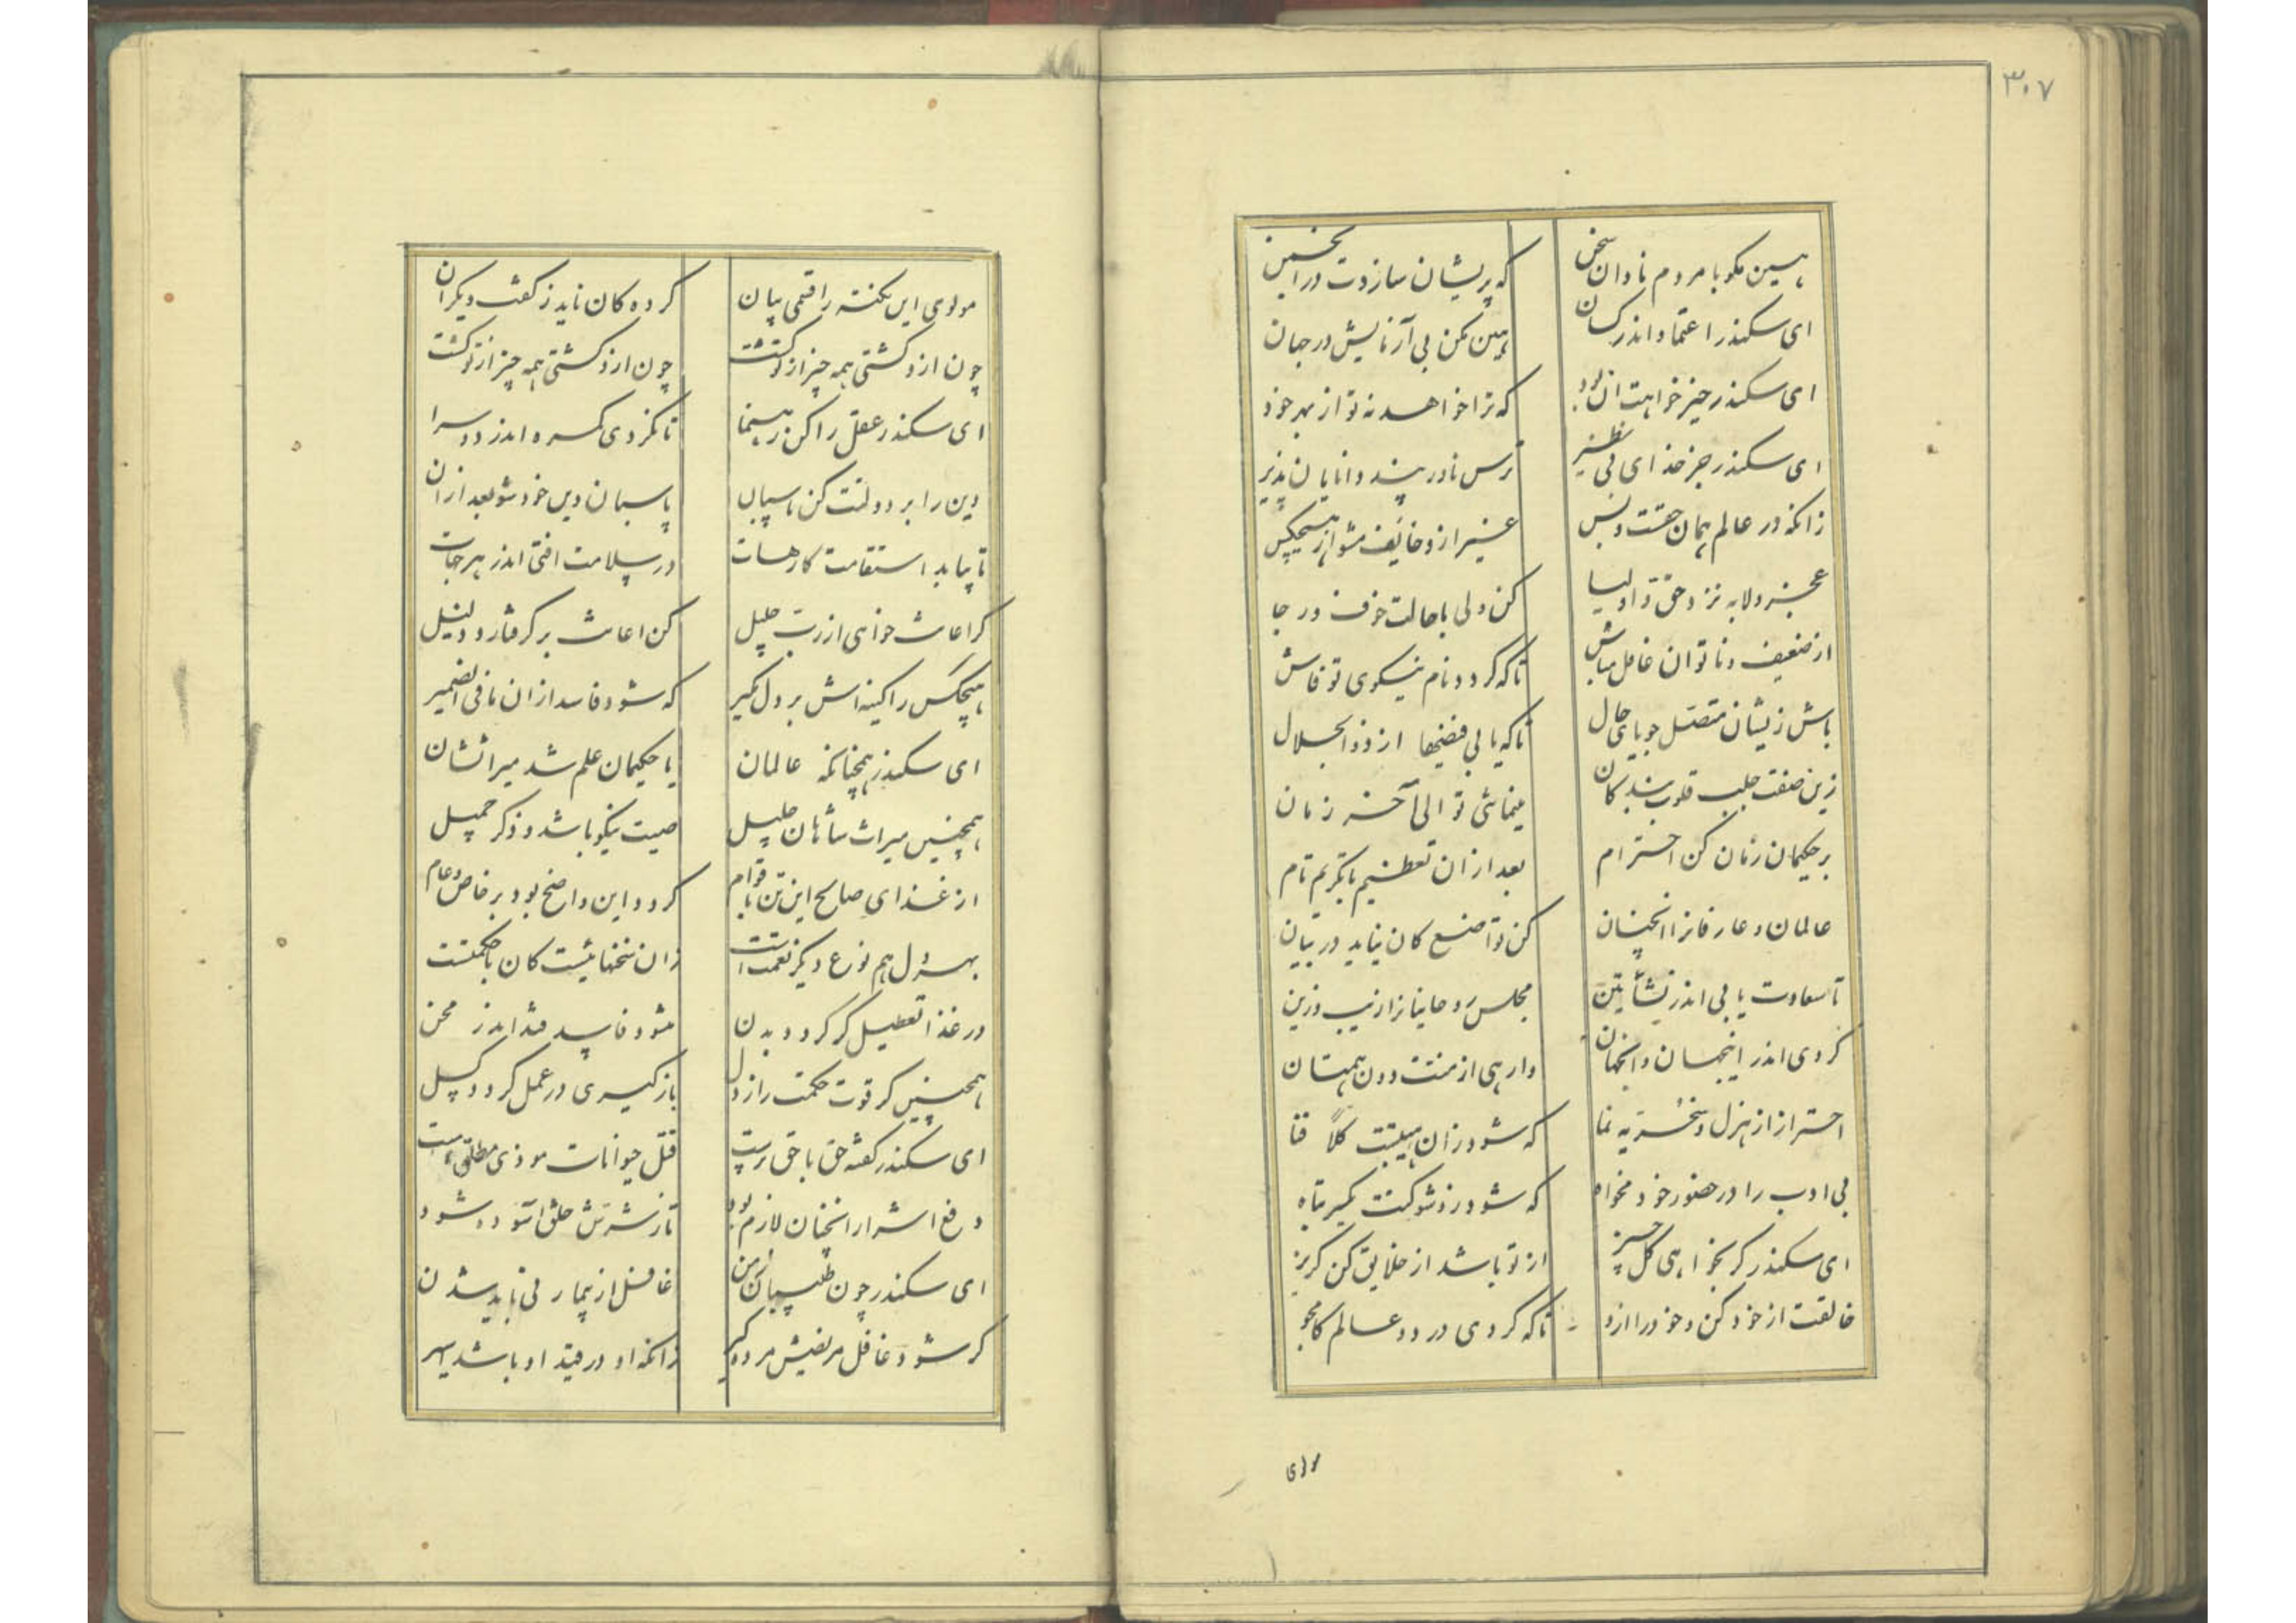 ۳۰۷
هین مکو با مردم نادان سخن که پریشان سازدت در انجمن
ای سکندر اعتماد اندر کسان هین مکن بی آزمایش در جهان
ای سکندر جیز خواهت ان بود که ترا خواهد نه تو از بهر خود
ای سکندر جز خدای بی نظیر ترس نادر پند دانایان پذیر
زانکه در عالم همان حقست و بس غیر ازو خایف مشو از هیچکس
عجز و لابه نزد حق و اولیا کن ولی با حالت خوف و رجا
از ضعیف و ناتوان غافل مباش تا که کردد نام نیکوی تو فاش
باش زیشان متصل جویای حال تا که یابی فیضها از ذوالجلال
زین صفت جلب قلوب بندکان مینمائی تو الی آخر زمان
بر حکیمان زمان کن احترام بعد ازان تعظیم با تکریم تام
عالمان و عارفانرا انچنان کن تواضع کان نیاید در بیان
تا سعادت یابی اندر نشأتین مجلس روحانیانرا زیب و زین
کردی اندر اینجهان و انجهان وارهی از منت دون همتان
احتراز از هزل و سخریه نما که شود زان هیبتت کلاً فنا
بی ادب را در حضور خود مخواه که شود زو شوکتت یکسر تباه
ای سکندر کر بخواهی کل چیز از تو باشد از خلایق کن کریز
خالقت از خود کن و خود را ازو تا که کردی در دو عالم کامجو
مولوی
مولوی این نکته را قمی بیان کرده کان ناید ز کفت دیکران
چون ازو کشتی همه چیز از تو کشت چون ازو کشتی همه چیز از تو کشت
ای سکندر عقل را کن رهنما تا نکردی کمره اندر دو سرا
دین را بر دولتت کن پاسبان پاسبان دین خود شو بعد ازان
تا بیابد استقامت کارهات در سلامت افتی اندر هر جهات
کر اعانت خواهی از رب جلیل کن اعانت بر کرفتار و ذلیل
هیچکس را کینه اش بر دل مکیر که شود فاسد ازان مافی الضمیر
ای سکندر همچنانکه عالمان یا حکیمان علم شد میراثشان
همچنین میراث شاهان جلیل صیت نیکو باشد و ذکر جمیل
از غذای صالح این تن با قوام کردد و این واضح بود بر خاص و عام
بهر دل هم نوع دیکر نعمت است زان سخنهائیست کان با حکمتست
در غذا تعطیل کر کردد بدن شود فاسد فتد اندر محن
همچنین کر قوت حکمت را ز دل بازکیری در عمل کردد کسل
ای سکندر کفته حق با حق پرست قتل حیوانات موذی مطلق است
دفع اشرار انچنان لازم بود تا ز شرش خلق آسوده شود
ای سکندر چون طبیبان زمن غافل از بیمار نی باید شدن
کر شود غافل مریضش مرده کیر زانکه او در قید او باشد اسیر